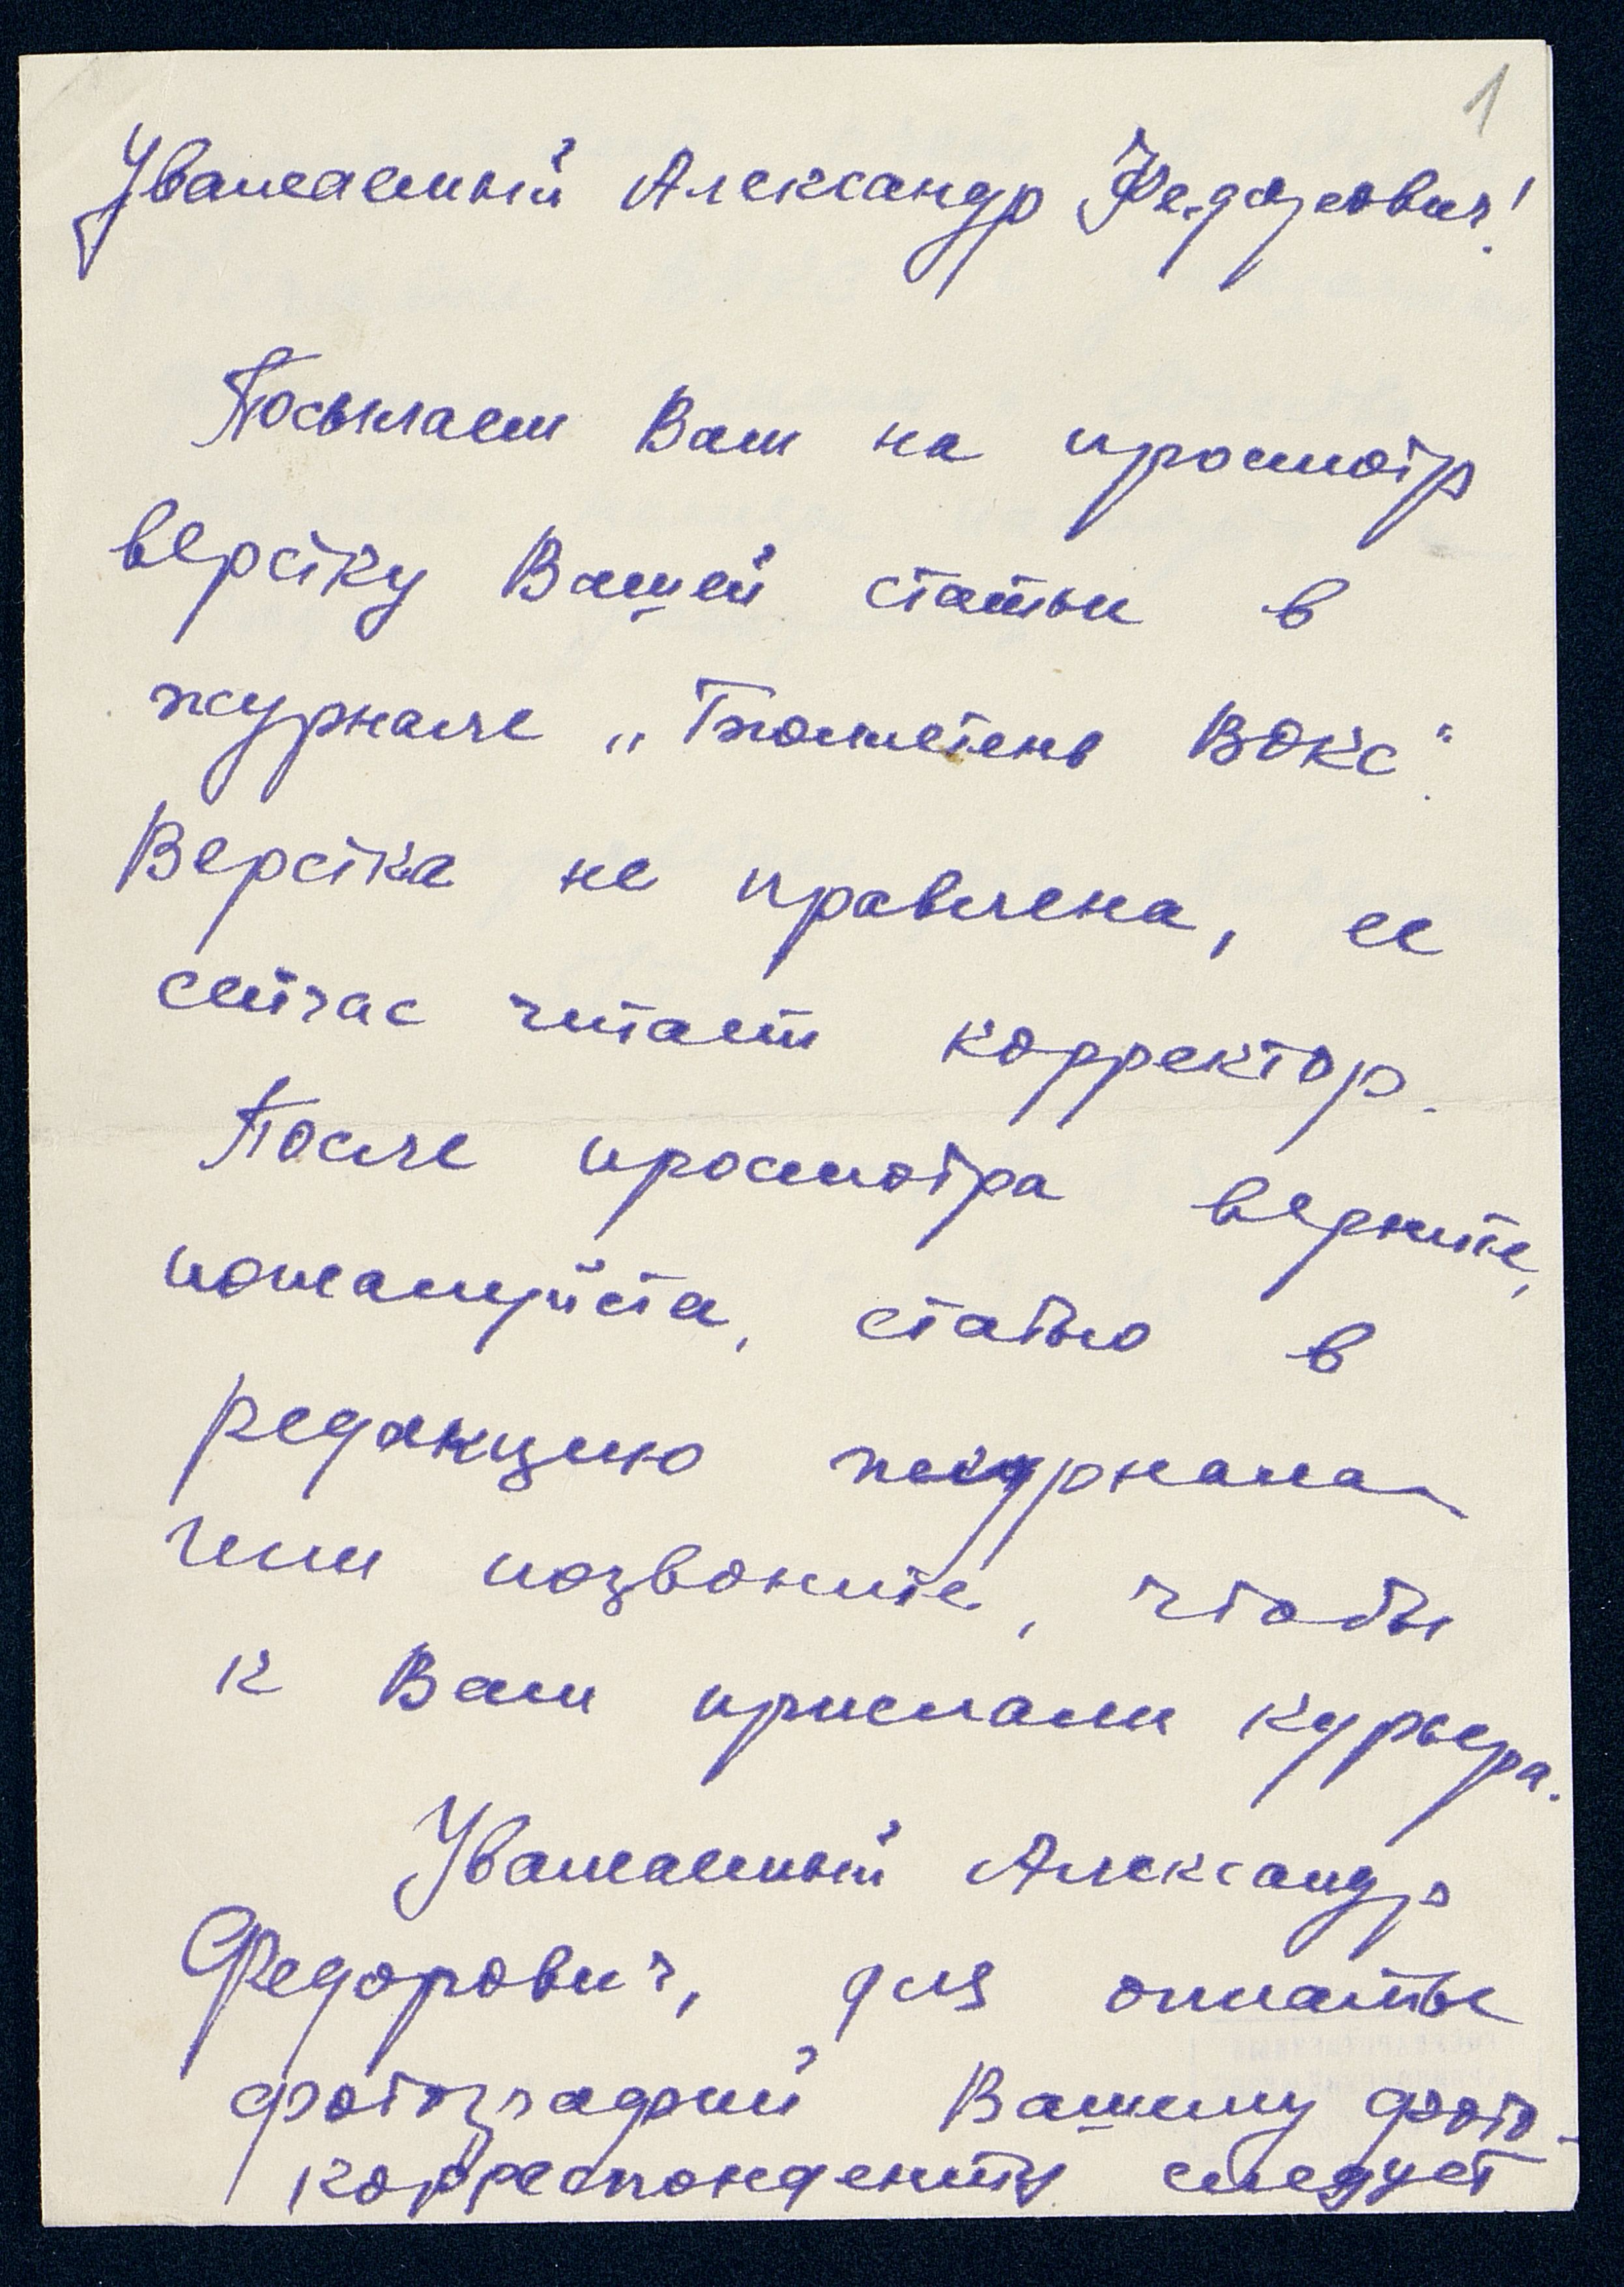 1
Уважаемый Александр Федорович!
Посылаем Вам на просмотр
верстку Вашей статьи в
журнале „Бюллетень ВОКС“.
Верстка не правлена, ее
сейчас читает корректор.
После просмотра верните,
пожалуйста, статью в
редакцию журнала
или позвоните, чтобы
к Вам прислали курьера.
Уважаемый Александр
Федорович, для оплаты
фотографий Вашему фото-
корреспонденту следует